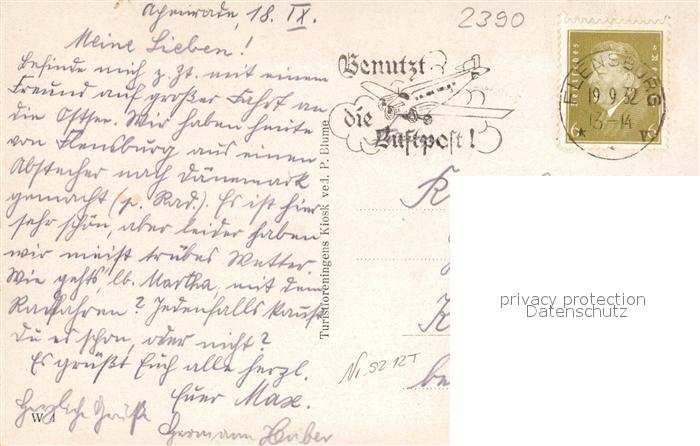 Apenrade, 18. IX.
2390
Meine Lieben!
Befinde mich z. Zt. mit einem
Freund auf großer Fahrt an
die Ostsee. Wir haben heute
von Flensburg aus einen
Abstecher nach Dänemark
gemacht (p. Rad.). Es ist hier
sehr schön, aber leider haben
wir meist trübes Wetter.
Wie gehts, lb. Martha, mit dem
Radfahren? Jedenfalls kannst
Du es schon, oder nicht?
Es grüßt Euch alle herzl.
Euer Max.
Herzliche Grüße
Hermann Huber
W. 1
Turistforeningens Kiosk ved. P. Blume
Benutzt
die
Luftpost!
FLENSBURG
19.9.32
13-14
* V
Deutsches Reich
6 6
K
K
be
Nr. 52 12T
privacy protection
Datenschutz